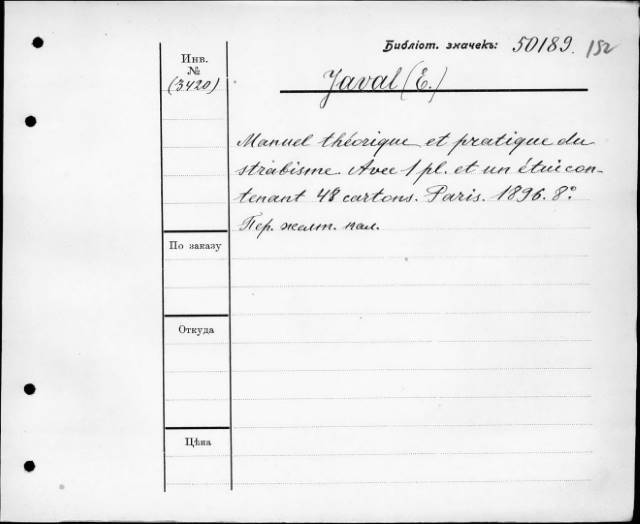 Библіот. значекъ: 50189. 152
Инв.
№
(3420)
Javal (E.)
Manuel théorique et pratique du
strabisme. Avec 1 pl. et un étui con-
tenant 48 cartons. Paris. 1896. 8°.
Пер. желт. кал.
По заказу
Откуда
Цѣна